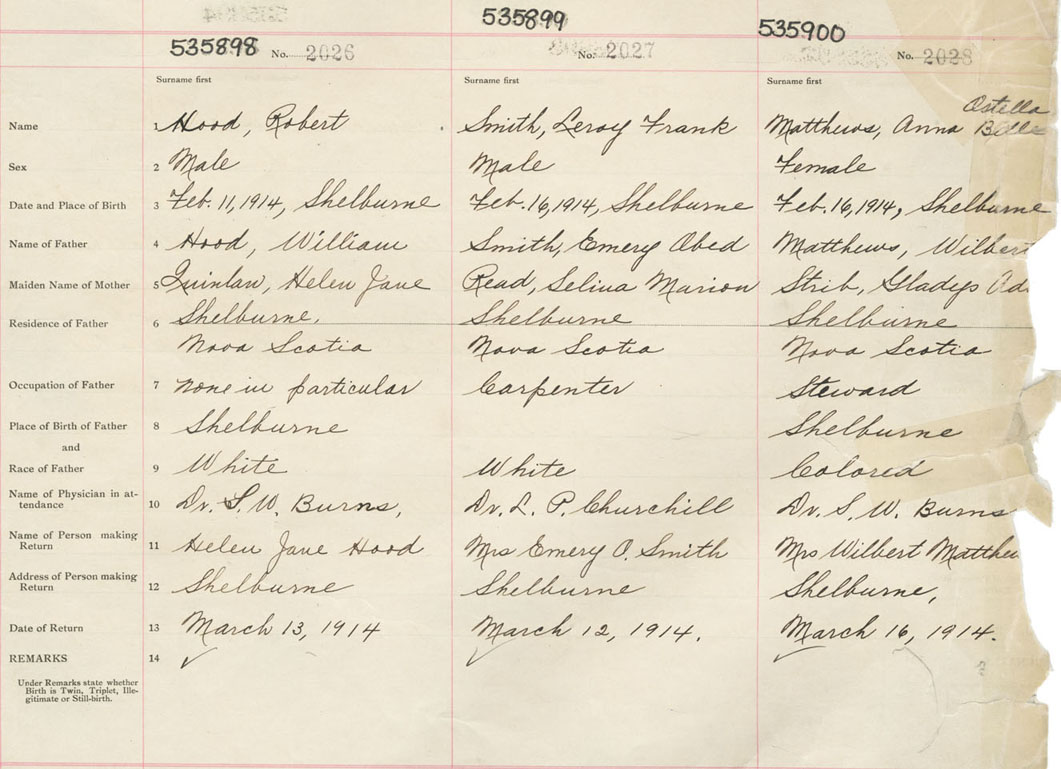 535899
535898 No. 2026 No. 2027 535900 No. 2028
Surname first Surname first Surname first
Ostella
Name 1 Hood, Robert Smith, Leroy Frank Matthews, Anna Belle
Sex 2 Male Male Female
Date and Place of Birth 3 Feb. 11, 1914, Shelburne Feb. 16, 1914, Shelburne Feb. 16, 1914, Shelburne
Name of Father 4 Hood, William Smith, Emery Obed Matthews, Wilbert
Maiden Name of Mother 5 Quinlan, Helen Jane Read, Selina Marion Strib, Gladys
Residence of Father 6 Shelburne, Shelburne Shelburne
Nova Scotia Nova Scotia Nova Scotia
Occupation of Father 7 none in particular Carpenter Steward
Place of Birth of Father 8 Shelburne Shelburne
and
Race of Father 9 White White Colored
Name of Physician in at-
tendance 10 Dr. S. W. Burns, Dr. L. P. Churchill Dr. S. W. Burns
Name of Person making
Return 11 Helen Jane Hood Mrs Emery O. Smith Mrs Wilbert Matthew
Address of Person making
Return 12 Shelburne Shelburne Shelburne,
Date of Return 13 March 13, 1914 March 12, 1914. March 16, 1914.
REMARKS 14 ✓
Under Remarks state whether
Birth is Twin, Triplet, Ille-
gitimate or Still-birth.